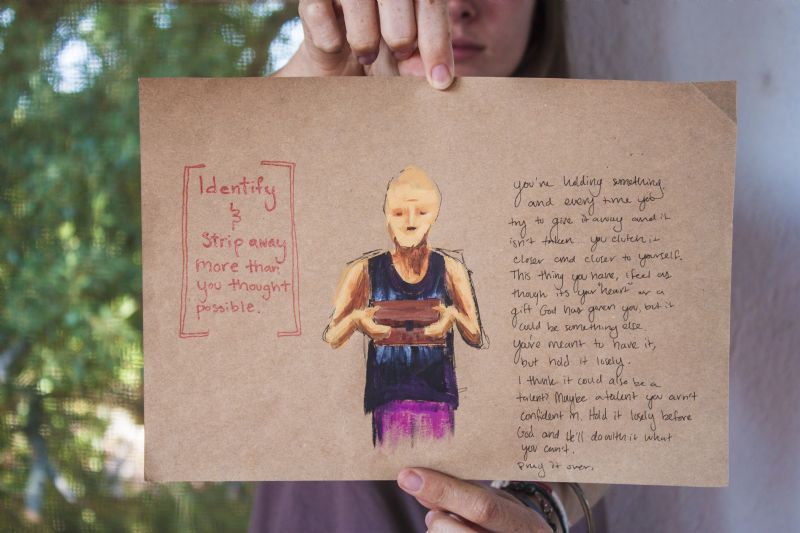 Identify
&
Strip away
more than
you thought
possible.
you're holding something.
and every time you
try to give it away and it
isn't taken... you clutch it
closer and closer to yourself.
This thing you have, i feel as
though it's your "heart" or a
gift God has given you, but it
could be something else.
you're meant to have it,
but hold it losely.
I think it could also be a
talent? Maybe a talent you arn't
confident in. Hold it losely before
God and He'll do with it what
you canst.
pray it over.